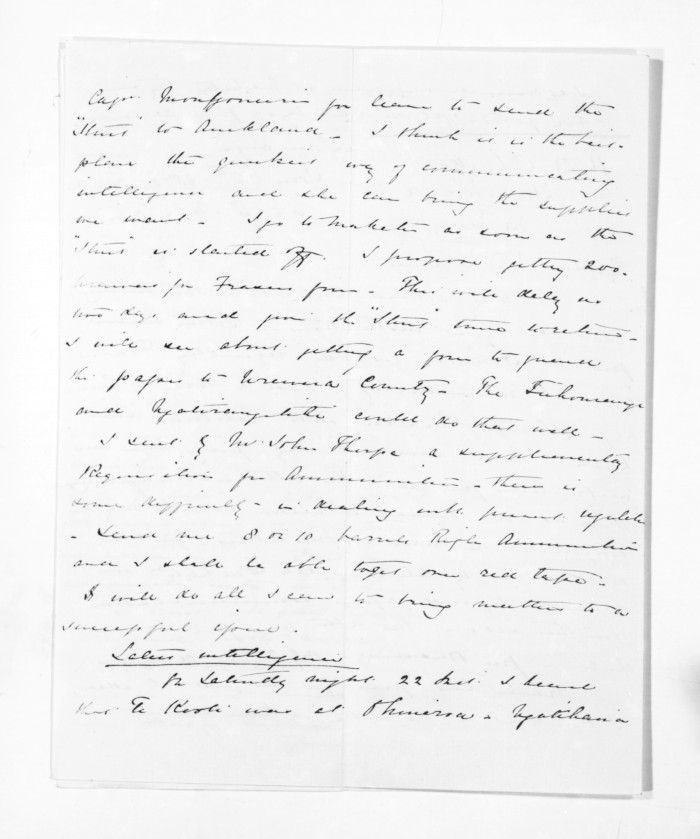 Capt Montgomerie for leave to send the
"Sturt" to Auckland - I think it is the best
place the quickest way of communicating
intelligence and she can bring the supplies
we want - I go to Maketu as soon as the
"Sturt" is started off. I propose getting 200
for Frasers force - This will delay us
two days and give the "Sturt" time to return -
I will see about getting a force to guard
the passes to Urewera County - The Tuhourangi
and Ngatirangitihi could do that well -
I sent by Mr John Thorpe a supplementary
Requisition for Ammunition - there is
some difficulty in dealing with present
- Send me 8 or 10 barrels Rifle Ammunition
and I shall be able to get over red tape -
I will do all I can to bring matters to a
successful issue.
Latest intelligence
On Saturday night 22 Inst. I heard
that Te Kooti was at Ohiwa -